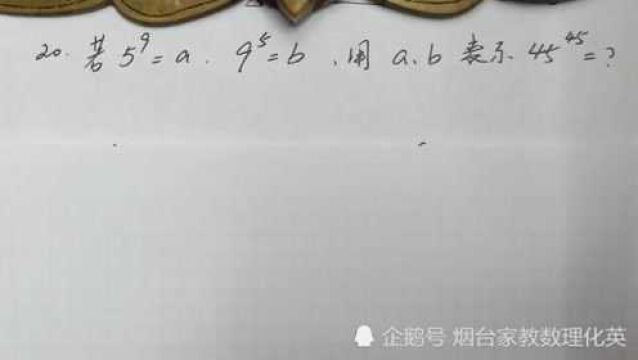 20. 若 5⁹=a. 9⁵=b .用 a、b 表示 45⁴⁵=?
企鹅号 烟台家教数理化英